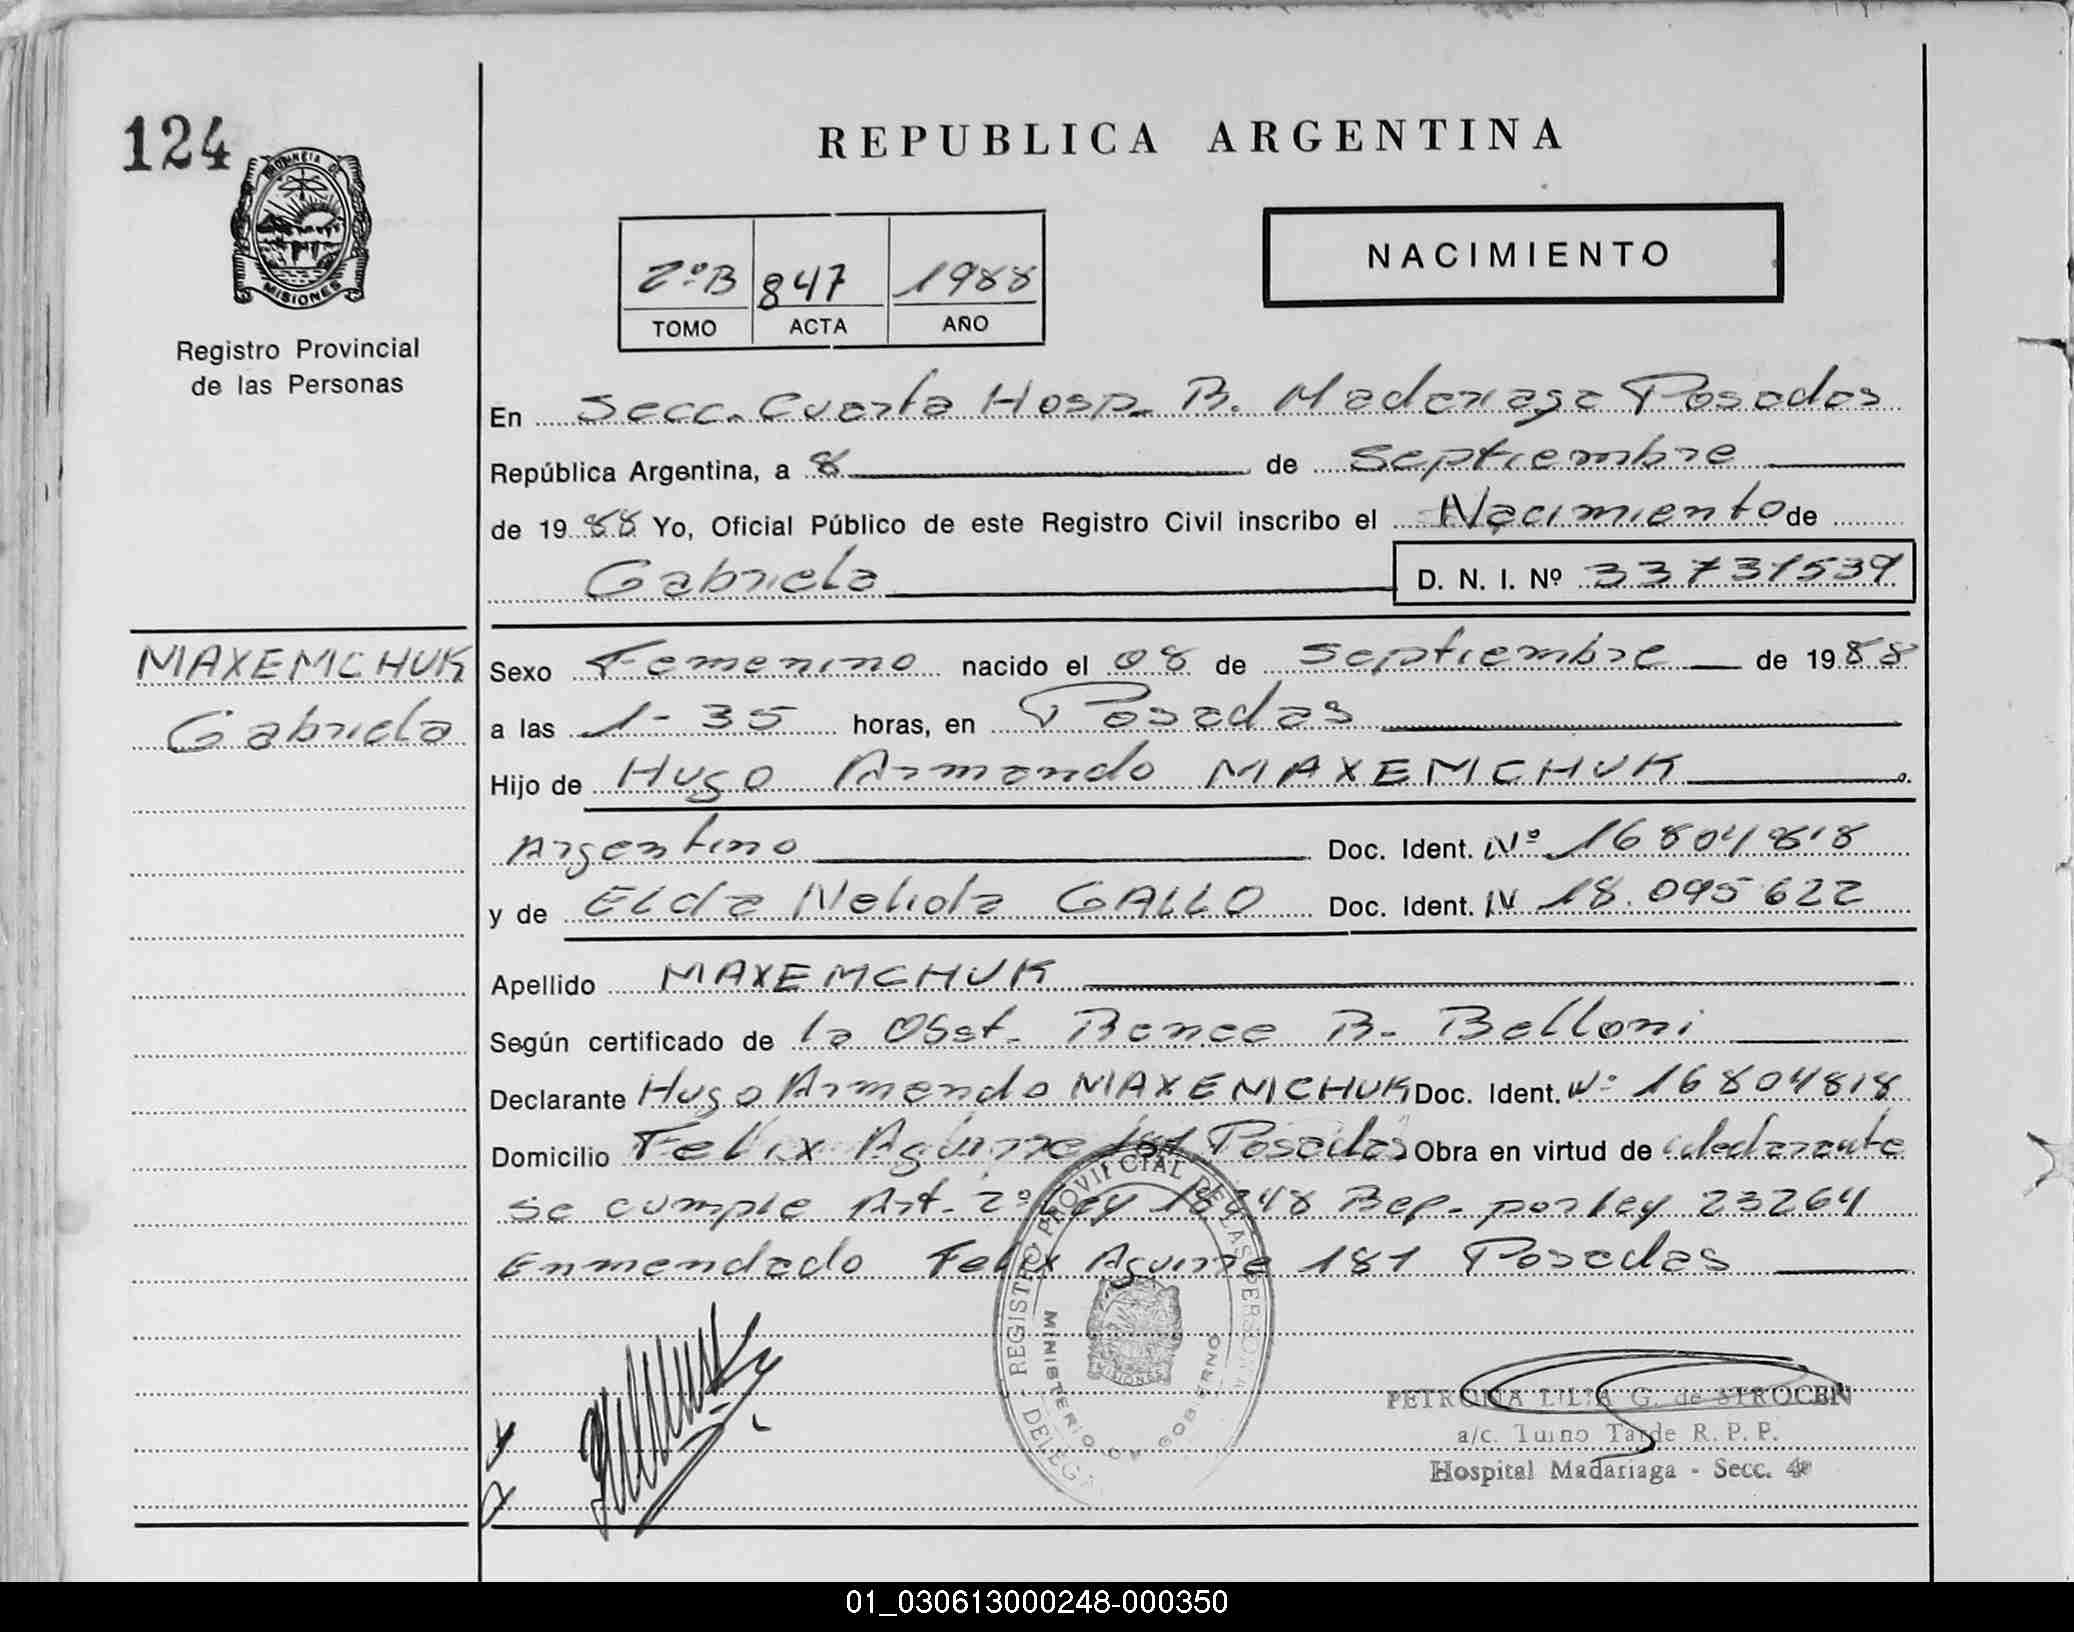 124
REPUBLICA ARGENTINA
PROVINCIA DE
MISIONES
Registro Provincial
de las Personas
2º B 847 1988
TOMO ACTA AÑO
NACIMIENTO
En Secc. Cuarta Hosp. R. Madariaga Posadas
República Argentina, a 8 de Septiembre
de 1988 Yo, Oficial Público de este Registro Civil inscribo el Nacimiento de
Gabriela D. N. I. Nº 33731539
MAXEMCHUK
Gabriela
Sexo Femenino nacido el 08 de Septiembre de 1988
a las 1-35 horas, en Posadas
Hijo de Hugo Armando MAXEMCHUK
Argentino Doc. Ident. Nº 16804818
y de Elda Nelida GALLO Doc. Ident. Nº 18.095622
Apellido MAXEMCHUK
Según certificado de la Obst. B. Belloni
Declarante Hugo Armando MAXEMCHUK Doc. Ident. Nº 16804818
Domicilio Felix Aguirre 181 Posadas Obra en virtud de declarante
se cumple Art. 2º Ley 18248 Rep. por ley 23264
Enmendado Felix Aguirre 181 Posadas
REGISTRO PROVINCIAL DE LAS PERSONAS
MINISTERIO DE GOBIERNO
MISIONES
PETRONA LILIA G. de STROCEN
a/c. Turno Tarde R. P. P.
Hospital Madariaga - Secc. 4ª
01_030613000248-000350